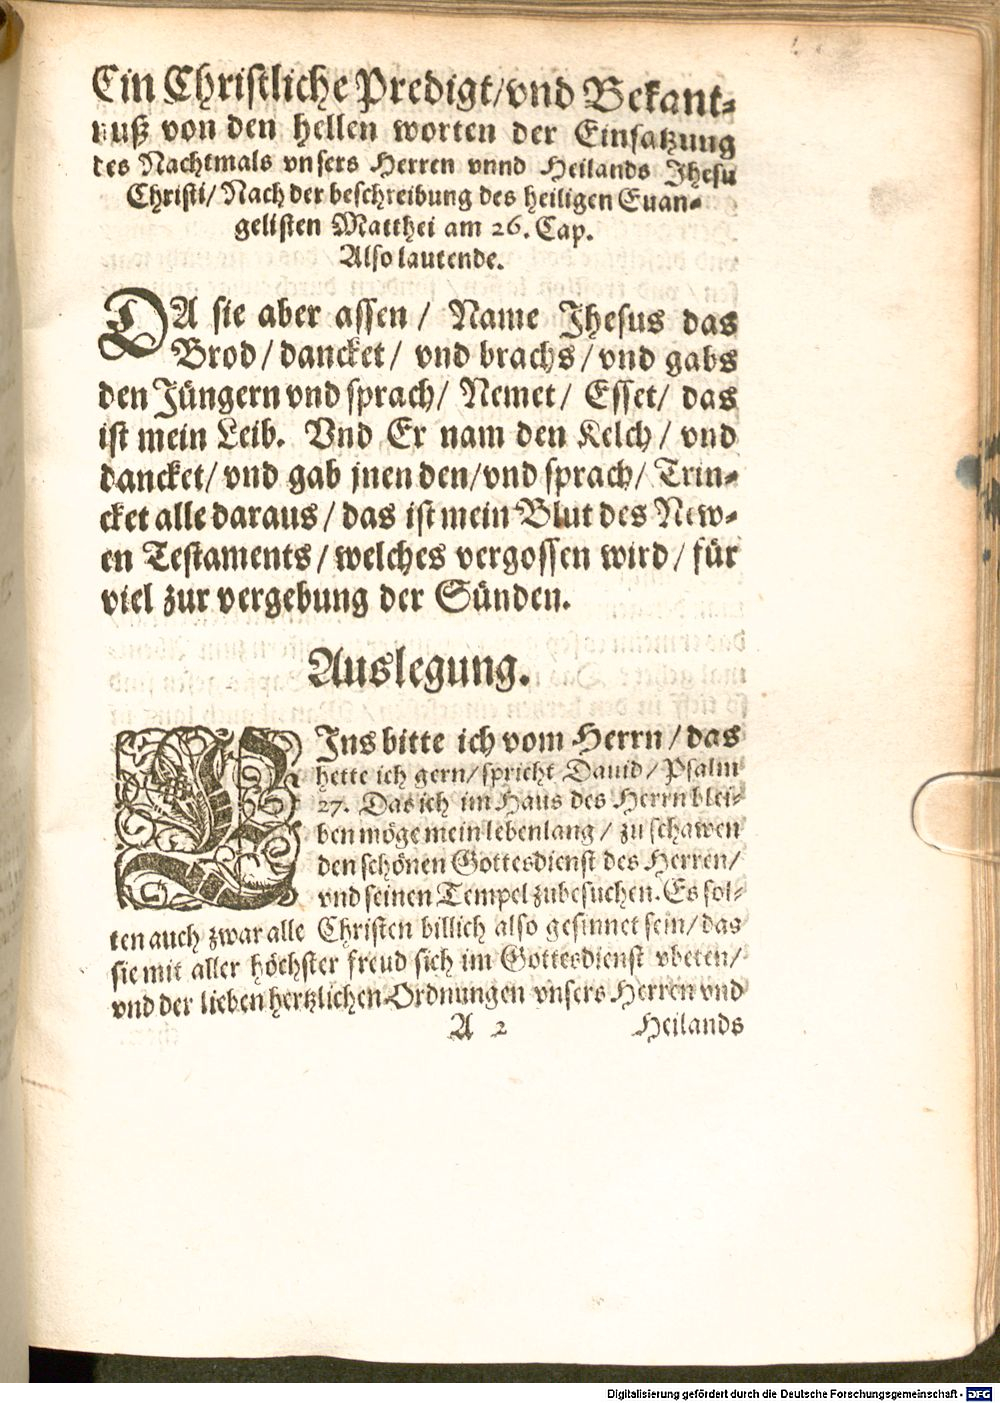 Ein Christliche Predigt/vnd Bekant-
nuß von den hellen worten der Einsatzung
des Nachtmals vnsers Herren vnnd Heilands Jhesu
Christi/ Nach der beschreibung des heiligen Euan-
gelisten Matthei am 26. Cap.
Also lautende.
DA sie aber assen / Name Jhesus das
Brod / dancket / vnd brachs / vnd gabs
den Jüngern vnd sprach/ Nemet / Esset/ das
ist mein Leib. Vnd Er nam den Kelch / vnd
dancket/ vnd gab jnen den/vnd sprach/ Trin-
cket alle daraus / das ist mein Blut des New-
en Testaments / welches vergossen wird / für
viel zur vergebung der Sünden.
Auslegung.
EJns bitte ich vom Herrn / das
hette ich gern/ spricht Dauid / Psalm
27. Das ich im Haus des Herrn blei-
ben möge mein lebenlang / zu schawen
den schönen Gottesdienst des Herren/
vnd seinen Tempel zubesuchen. Es sol-
ten auch zwar alle Christen billich also gesinnet sein/ das
sie mit aller höchster freud sich im Gottesdienst vbeten/
vnd der lieben hertzlichen Ordnungen vnsers Herren vnd
A 2 Heilands
Digitalisierung gefördert durch die Deutsche Forschungsgemeinschaft - DFG